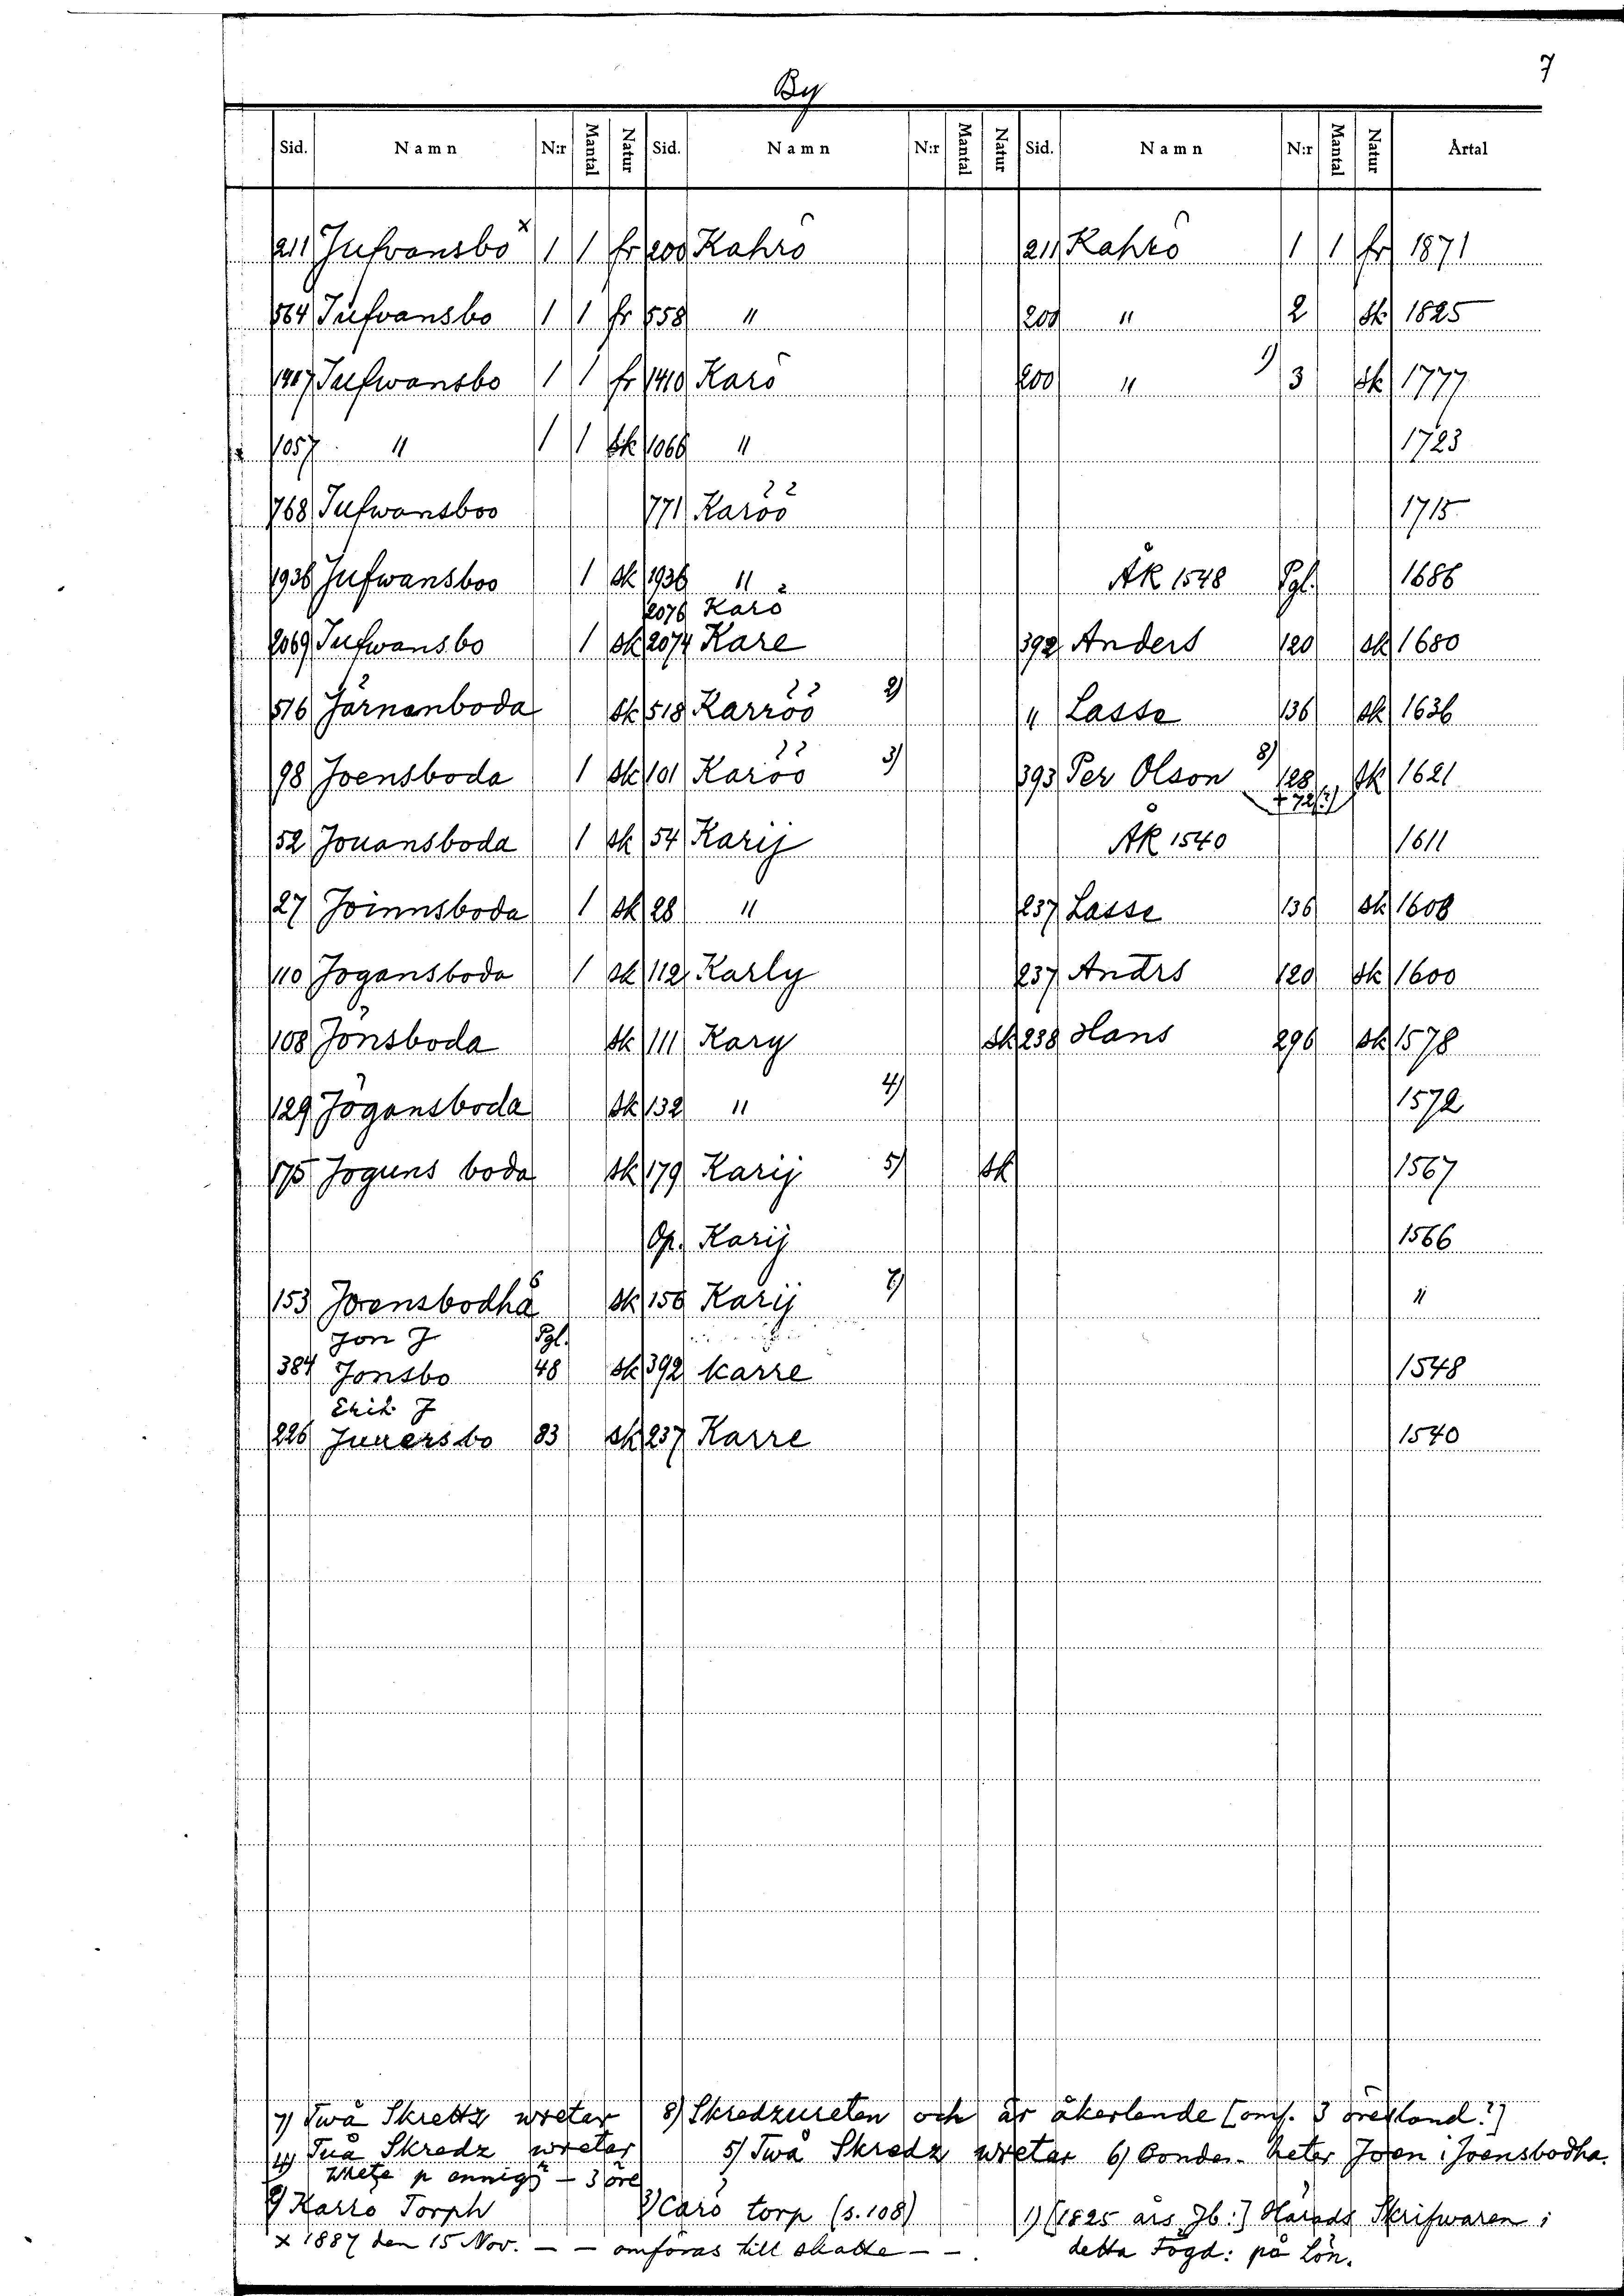 7
By
Sid. Namn N:r Mantal Natur Sid. Namn N:r Mantal Natur Sid. Namn N:r Mantal Natur Årtal
211 Jufvansbo x 1 1 fr 200 Kahrö 211 Kahrö 1 1 fr 1871
564 Jufvansbo 1 1 fr 558 " 200 " 2 sk 1825
1407 Jufwansbo 1 1 fr 1410 Karö 200 " 1) 3 sk 1777
1057 " 1 1 sk 1066 " 1723
768 Jufwansboo 771 Karöö 1715
1936 Jufwansboo 1 sk 1936 " ÅK 1548 Pgl. 1686
2076 Karö
2069 Jufwansbo 1 sk 2074 Kare 392 Anders 120 sk 1680
516 Järnanboda sk 518 Karröö 2) " Lasse 136 sk 1636
98 Joensboda 1 sk 101 Karöö 3) 393 Per Olson 8) 128 sk 1621
+ 72(?)
52 Jouansboda 1 sk 54 Karij ÅK 1540 1611
27 Joinnsboda 1 sk 28 " 237 Lasse 136 sk 1608
110 Jogansboda 1 sk 112 Karly 237 Andrs 120 sk 1600
108 Jönsboda sk 111 Kary sk 238 Hans 296 sk 1578
129 Jögansboda sk 132 " 4) 1572
175 Joguns boda sk 179 Karij 5) sk 1567
Op. Karij 1566
153 Jorensbodha 6 sk 156 Karij 7) "
Jon J Pgl.
384 Jonsbo 48 sk 392 karre 1548
Erik J
226 Juuersbo 83 sk 237 Karre 1540
7) Twå Skrettz wretar 8) Skredzureten och är åkerlende [omf. 3 öresland?]
4) Tuå Skredz wretar 5) Twå Skredz wretar 6) Bonden heter Joen i Joensbodha.
wretze p ennigs - 3 öre
2) Karro Torph 3) Carö torp (s. 108) 1) [1825 års Jb:] Härads Skrifwaren i
x 1887 den 15 Nov. - - omföras till skatte - -. detta Fögd: på Lön.